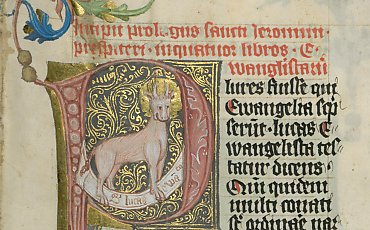 Incipit prologus sancti Jeronimi
prespiteri · inquatuor libros · E·
wanglistarū
Plures fuisse qui
Ewangelia scp
serūt · lucas E
wangelista tes
tatur dicens
Qm̄ quidem
multi conati
st̄ ordinare nar
lucas